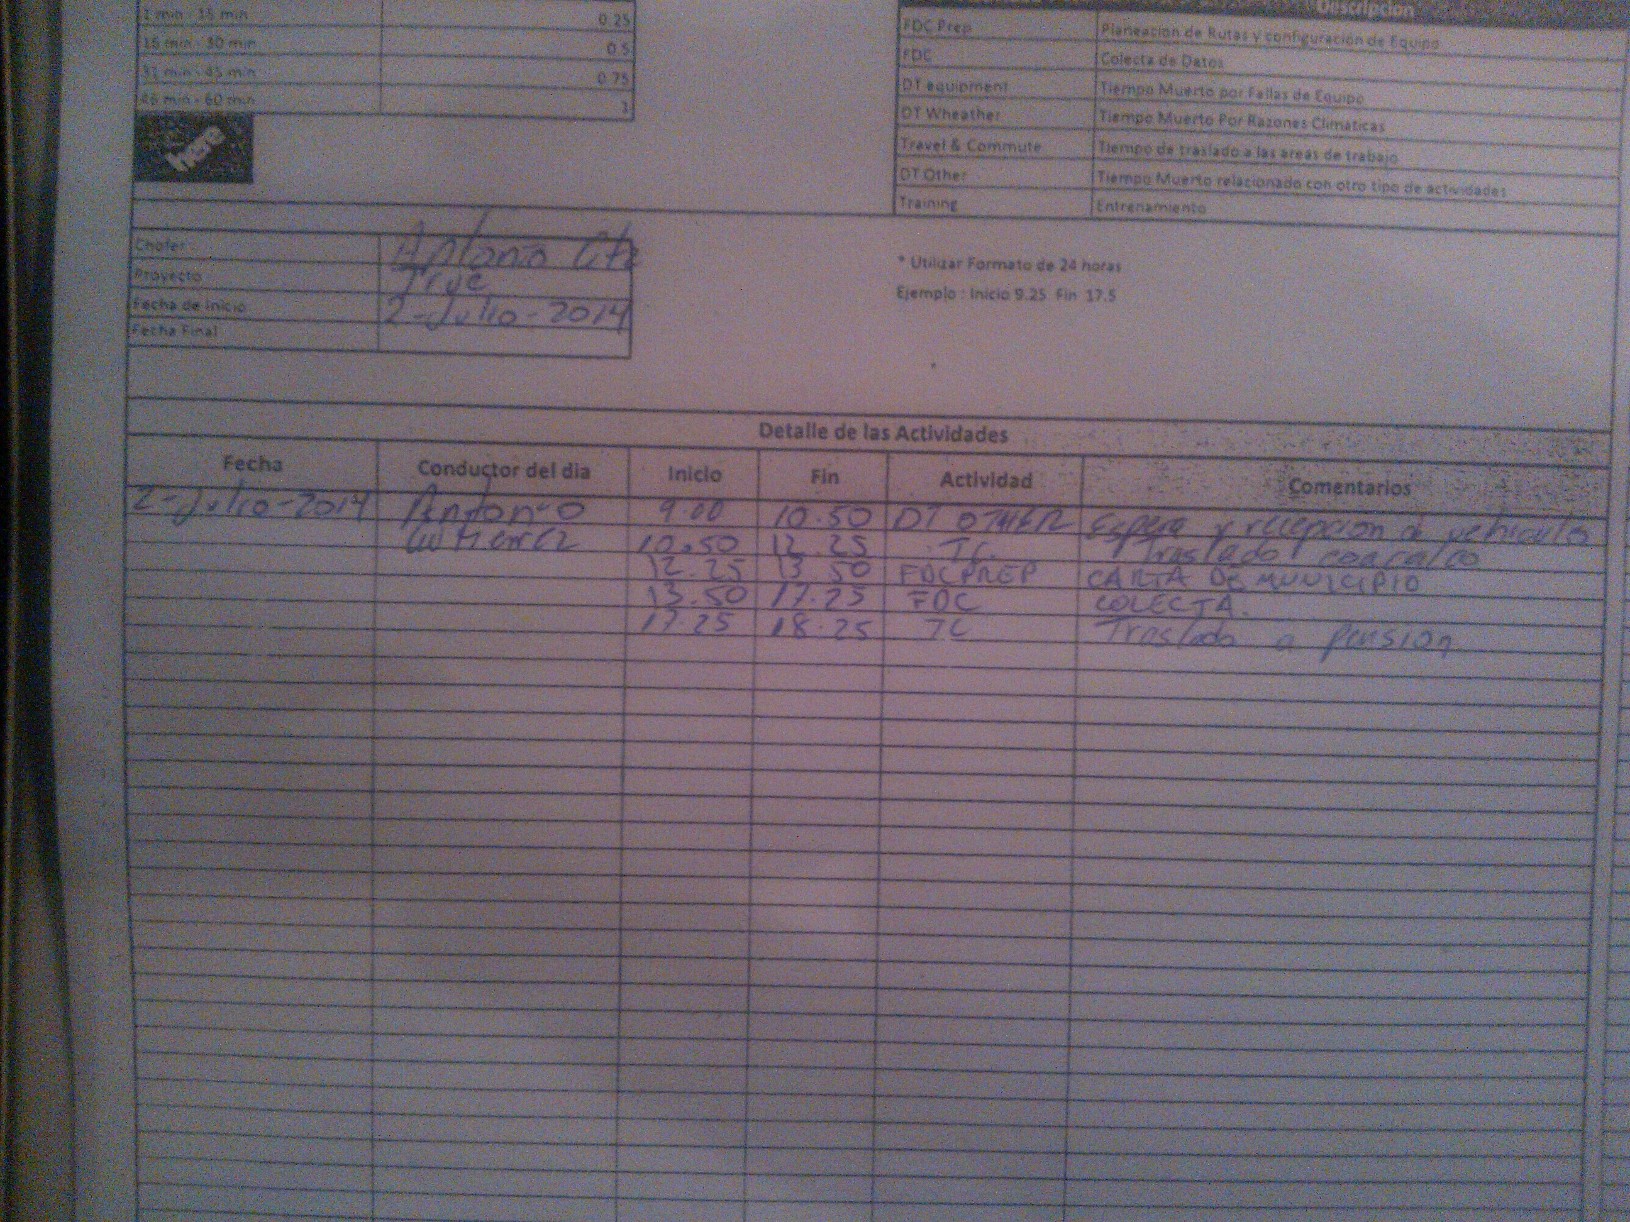 Descripcion
1 min - 15 min 0.25
16 min - 30 min 0.5
31 min - 45 min 0.75
46 min - 60 min 1
FDC Prep Planeacion de Rutas y configuración de Equipo
FDC Colecta de Datos
DT equipment Tiempo Muerto por Fallas de Equipo
DT Wheather Tiempo Muerto Por Razones Climaticas
Travel & Commute Tiempo de traslado a las areas de trabajo
DT Other Tiempo Muerto relacionado con otro tipo de actividades
Training Entrenamiento
here
Chofer : Antonio Gtz
Proyecto True
Fecha de Inicio 2-Julio-2014
Fecha Final
* Utilizar Formato de 24 horas
Ejemplo : Inicio 9.25 Fin 17.5
Detalle de las Actividades
Fecha Conductor del dia Inicio Fin Actividad Comentarios
2-Julio-2014 Antonio 9.00 10.50 DT OTHER Espera y recepcion d vehiculo
Gutierrez 10.50 12.25 TC. Traslado coacalco
12.25 13.50 FDCPREP CARTA DE MUNICIPIO
13.50 17.25 FDC COLECTA.
17.25 18.25 TC Traslado a pension